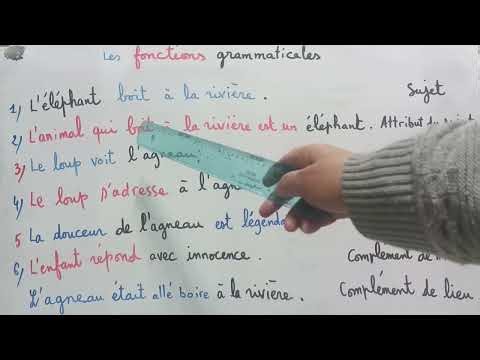 Les fonctions grammaticales
1) L'éléphant boit à la rivière. Sujet
2) L'animal qui boit à la rivière est un éléphant. Attribut du sujet
3) Le loup voit l'agneau.
4) Le loup s'adresse à l'agn
5 La douceur de l'agneau est légenda
6) L'enfant répond avec innocence. Complément de m
L'agneau était allé boire à la rivière. Complément de lieu.